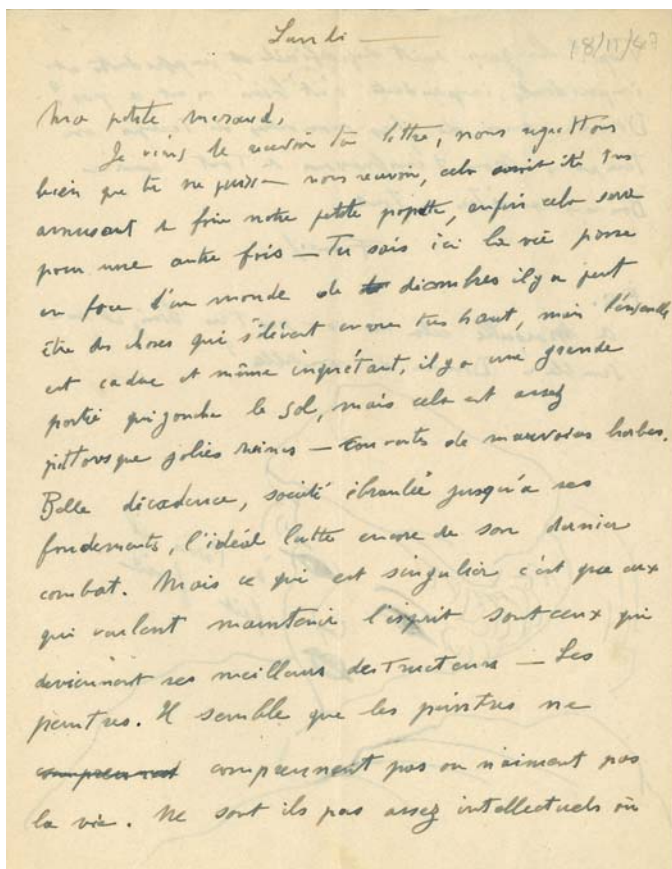 Lundi
18/11/47
Ma petite
Je viens de recevoir ta lettre, nous regrettons
bien que tu ne puisses nous recevoir, cela aurait été très
amusant de finir notre petite popotte, enfin cela sera
pour une autre fois — Tu sais ici la vie passe
en face d'un monde de décombres il y a peut
être des choses qui s'élèvent encore très haut, mais l'ensemble
est caduc et même inquiétant, il y a une grande
partie qui jonche le sol, mais cela est assez
pittoresque jolies ruines — couvertes de mauvaises herbes.
Belle décadence, société ébranlée jusqu'à ses
fondements, l'idéal lutte encore de son dernier
combat. Mais ce qui est singulier c'est que ceux
qui veulent maintenir l'esprit sont ceux qui
deviennent ses meilleurs destructeurs — Les
peintres. Il semble que les peintres ne
comprennent pas ou n'aiment pas
la vie. Ne sont ils pas assez intellectuels où